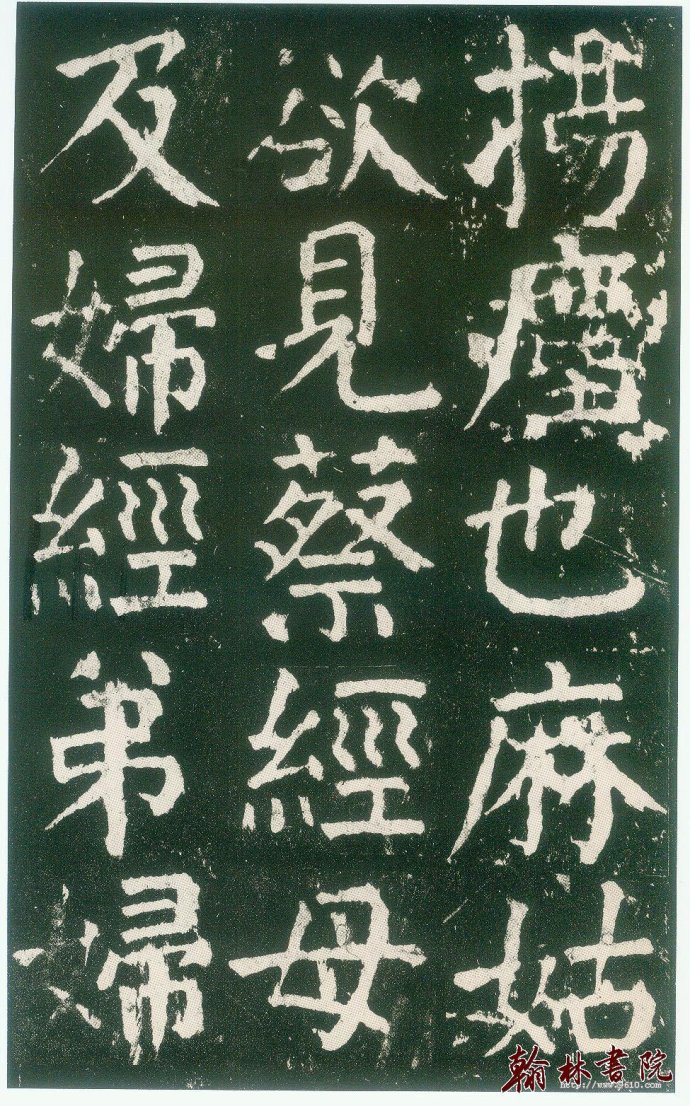 揚塵也麻姑
欲見蔡經母
及婦經弟婦
翰林書院
http://www.9610.com